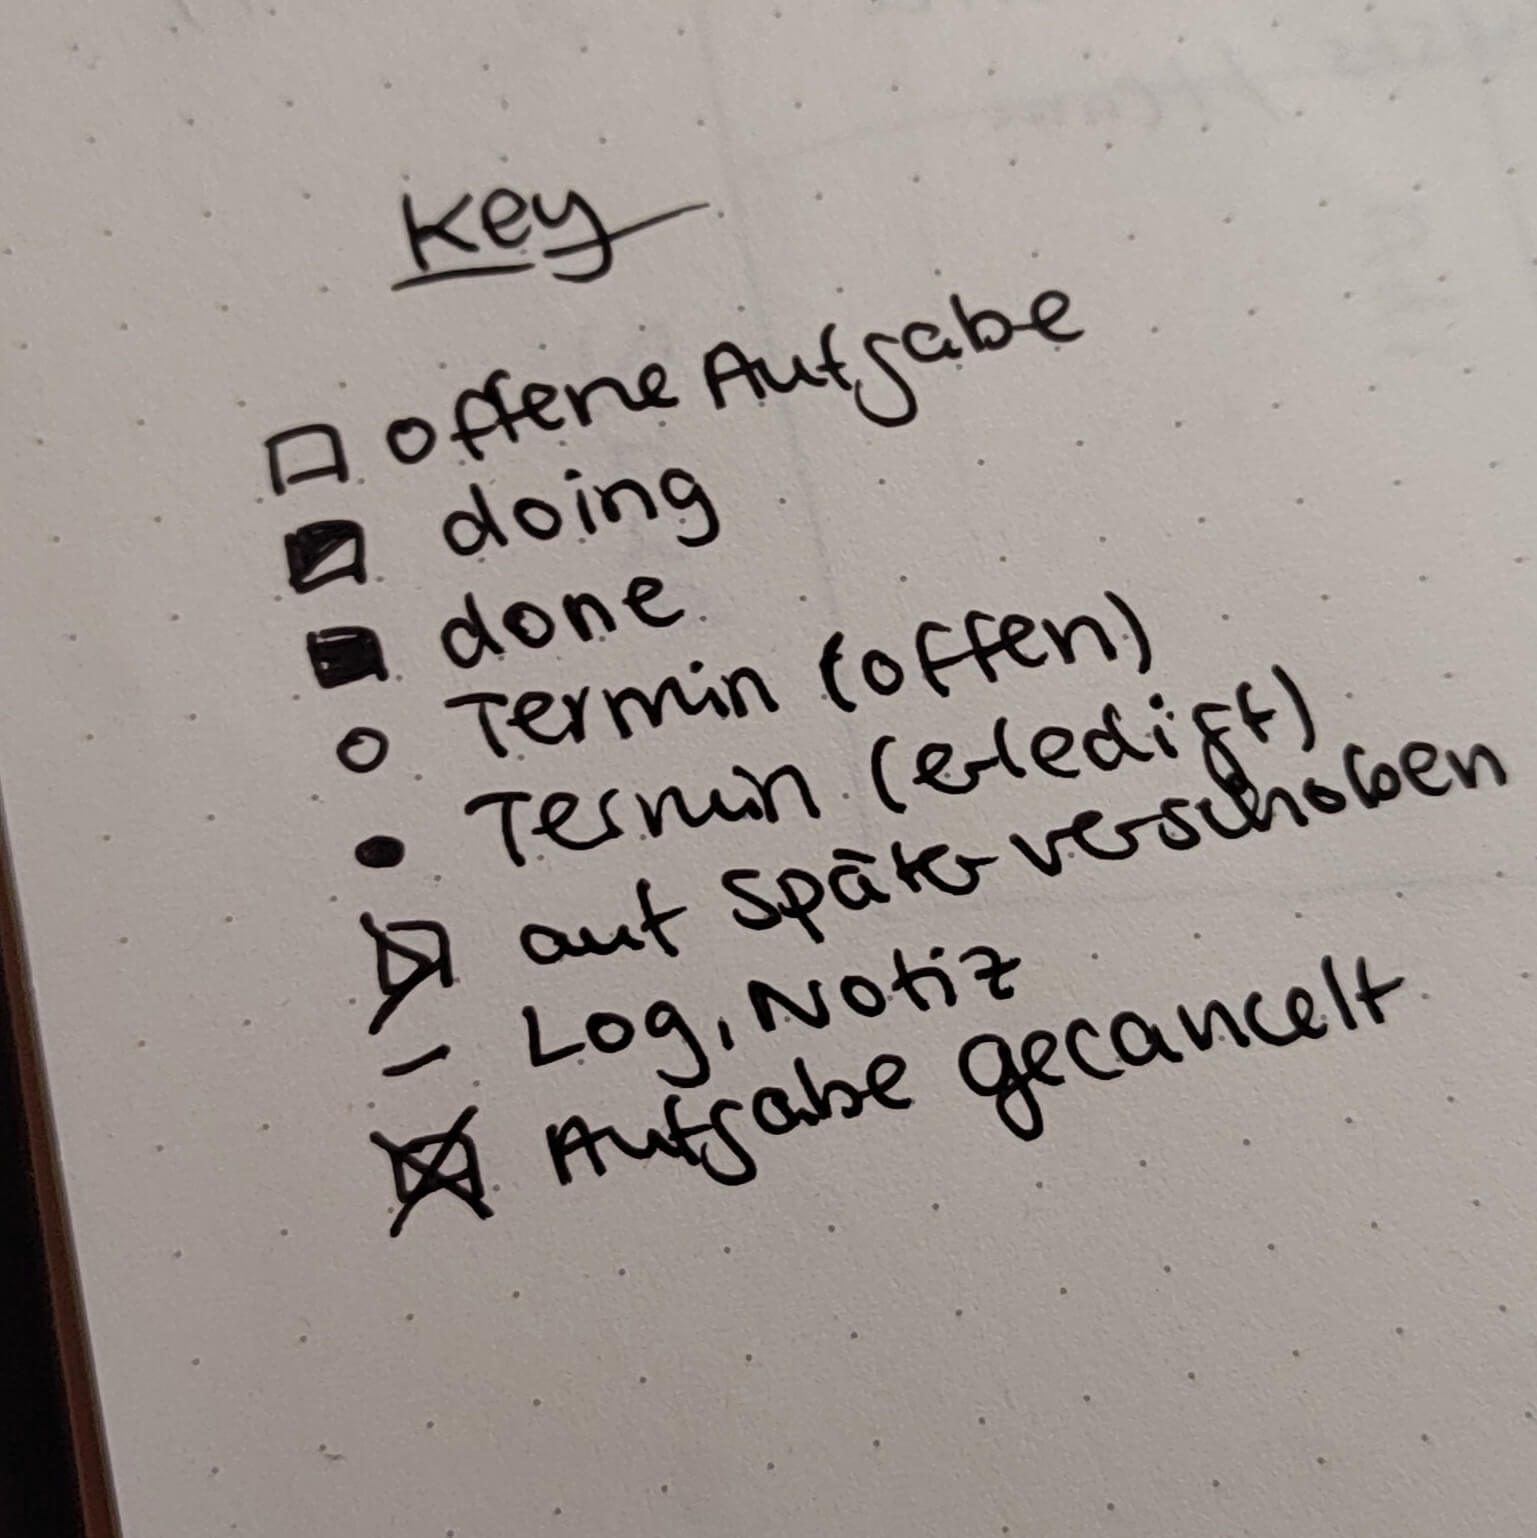 Key
offene Aufgabe
doing
done
Termin (offen)
Termin (erledigt)
auf später verschoben
Log, Notiz
Aufgabe gecancelt